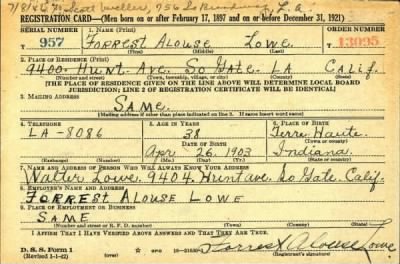 7/8/46 To Scott Weller, 956 So Broadway, L.A.
REGISTRATION CARD—(Men born on or after February 17, 1897 and on or before December 31, 1921)
SERIAL NUMBER 1. NAME (Print) ORDER NUMBER
957 FORREST ALOUSE LOWE 13095
(First) (Middle) (Last)
2. PLACE OF RESIDENCE (Print)
9400 Hunt Ave. So Gate. LA Calif.
(Number and street) (Town, township, village, or city) (County) (State)
[THE PLACE OF RESIDENCE GIVEN ON THE LINE ABOVE WILL DETERMINE LOCAL BOARD
JURISDICTION; LINE 2 OF REGISTRATION CERTIFICATE WILL BE IDENTICAL]
3. MAILING ADDRESS
SAME.
[Mailing address if other than place indicated on line 2. If same insert word same]
4. TELEPHONE 5. AGE IN YEARS 6. PLACE OF BIRTH
LA-8086 38 Terre Haute.
DATE OF BIRTH (Town or county)
Apr 26. 1903 Indiana
(Exchange) (Number) (Mo.) (Day) (Yr.) (State or country)
7. NAME AND ADDRESS OF PERSON WHO WILL ALWAYS KNOW YOUR ADDRESS
Walter Lowe. 9404. Hunt ave. So Gate. Calif.
8. EMPLOYER'S NAME AND ADDRESS
FORREST ALOUSE LOWE
9. PLACE OF EMPLOYMENT OR BUSINESS
SAME
(Number and street or R. F. D. number) (Town) (County) (State)
I AFFIRM THAT I HAVE VERIFIED ABOVE ANSWERS AND THAT THEY ARE TRUE.
D. S. S. Form 1
(Revised 1-1-42) (over) Forrest Alouse Lowe
(Registrant's signature)